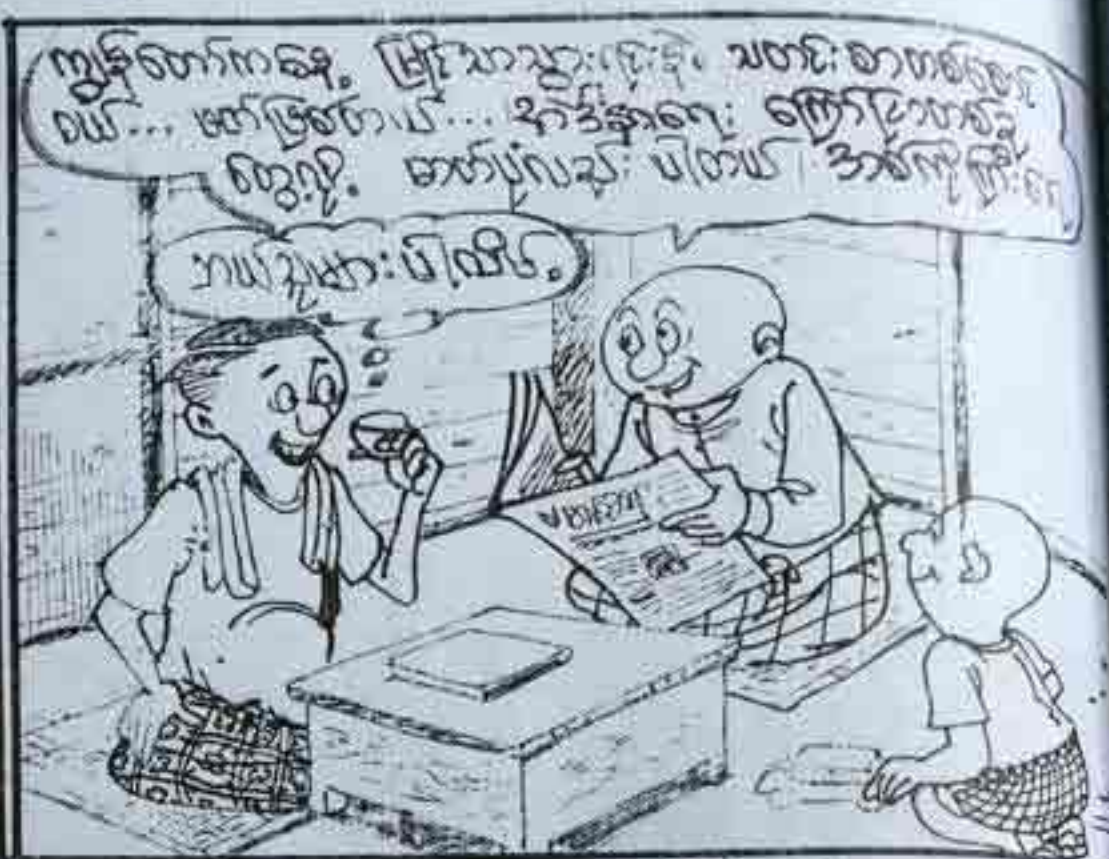 ကျွန်တော်ကနေ့ မြို့သာသွားရင်းနဲ့ သတင်းစာတစ်စောင်
ဝယ်... ဖတ်ဖြစ်တယ်... အဲဒီနာရေး ကြော်ငြာတစ်ခု
တွေ့လို့ ဓာတ်ပုံလည်း ပါတယ် အစ်ကိုကြီးရေ
ဘယ်သူများ ပါလိမ့်